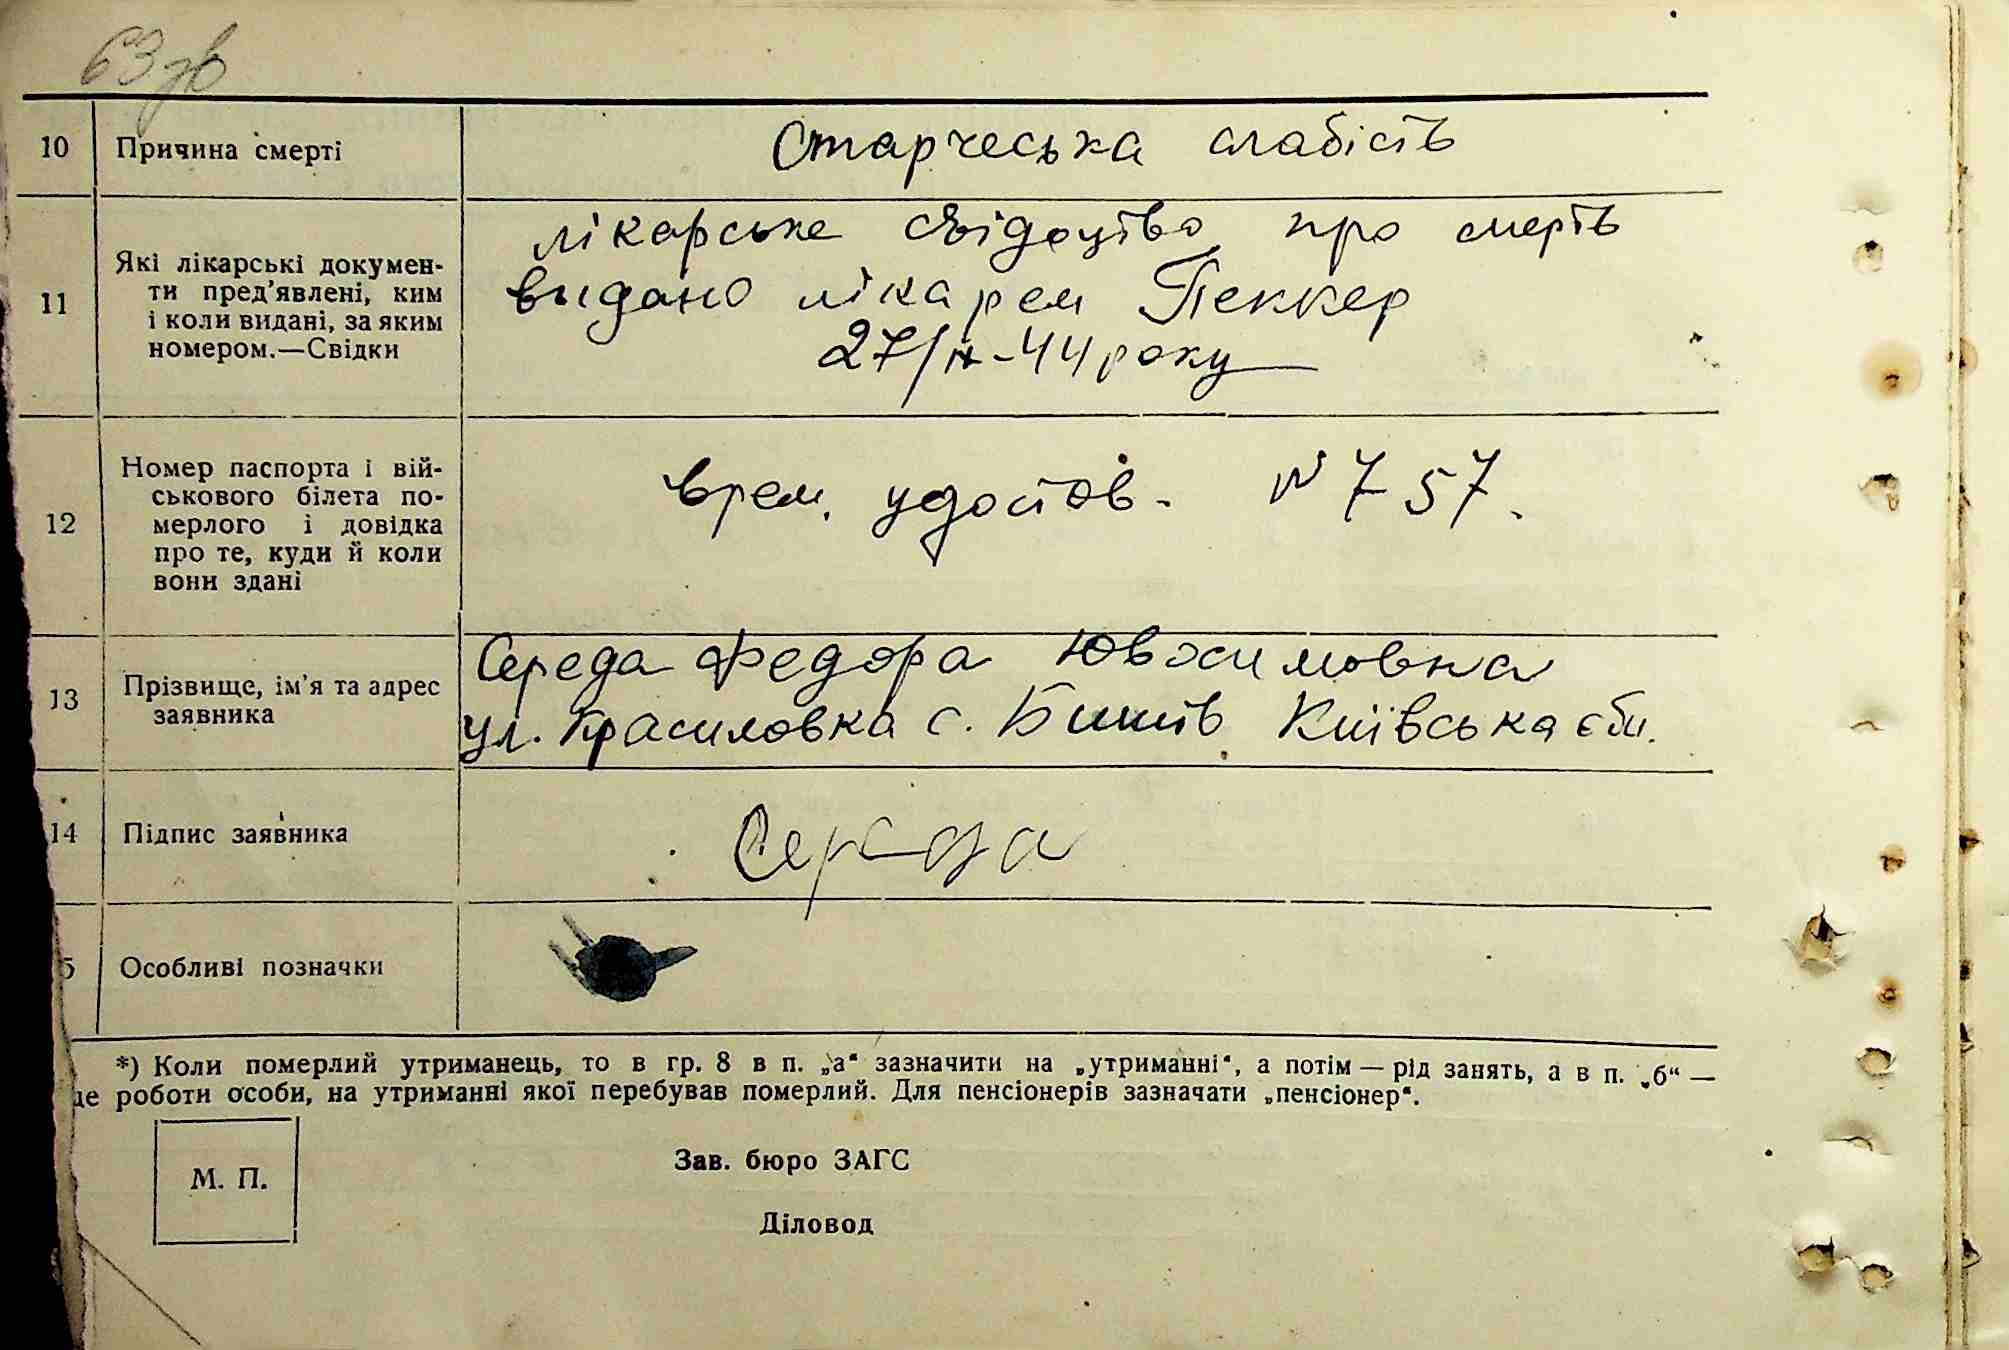 63зв
10 Причина смерті Старческа слабість
11 Які лікарські докумен-
ти пред'явлені, ким
і коли видані, за яким
номером.—Свідки
лікарське свідоцтво про смерть
видано лікарем Пеккер
27/ -44 року
12 Номер паспорта і вій-
ськового білета по-
мерлого і довідка
про те, куди й коли
вони здані
врем. удостов. N 757.
13 Прізвище, ім'я та адрес
заявника
Середа Федора
ул. Красиловка с. Київська
14 Підпис заявника Середа
5 Особливі позначки
*) Коли померлий утриманець, то в гр. 8 в п. „а“ зазначити на „утриманні“, а потім — рід занять, а в п. „б“ —
це роботи особи, на утриманні якої перебував померлий. Для пенсіонерів зазначати „пенсіонер“.
М. П.
Зав. бюро ЗАГС
Діловод